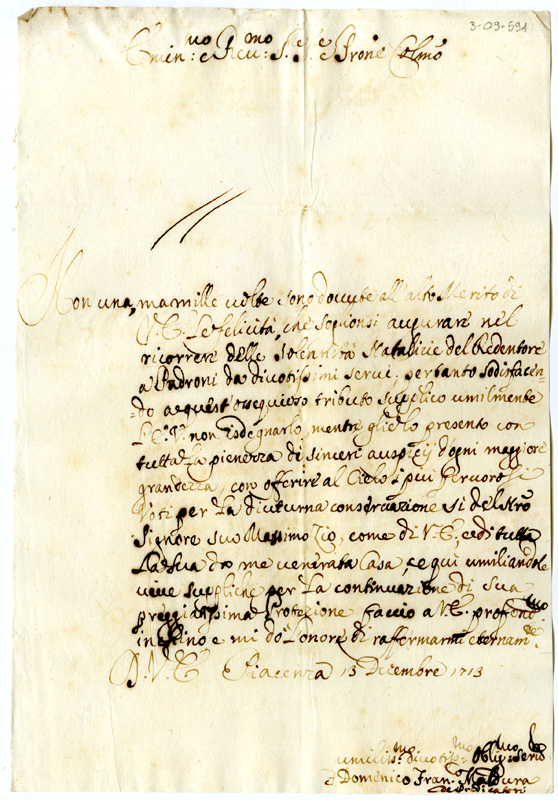 3-09-591
Emin:mo e Reu:mo S.r S.r e Prone Colmo
Non una, ma mille uolte sono douute all'alto Merito di
V.E. le felicità, che soglionsi augurare nel
ricorrere delle Solennità Natalizie del Redentore
a Padroni da diuotissimi serui; pertanto sodisfacen-
-do a quest'ossequioso tributo supplico umilmente
l'E.V. non isdegnarlo, mentre gliélo presento con
tutta la pienezza di sinceri auspicij d'ogni maggiore
grandezza, con offerire al Cielo i più feruorosi
Voti per la diuturna conseruazione si del Nro
Signore suo Massimo Zio, come di V.E., e di tutta
la sua da me venerata Casa, e qui umiliandole
uiue suppliche per la continuazione di sua
preggiatissima Protezione faccio a V.E. profondmo
inchino e mi dò l'onore di raffermarmi eternam.te
D.V.E. Piacenza 13 Dicembre 1713
umiliss:mo diuotiss:mo Oblig:mo Serud.re
F Domenico Fran. Maldura
de Predicatori